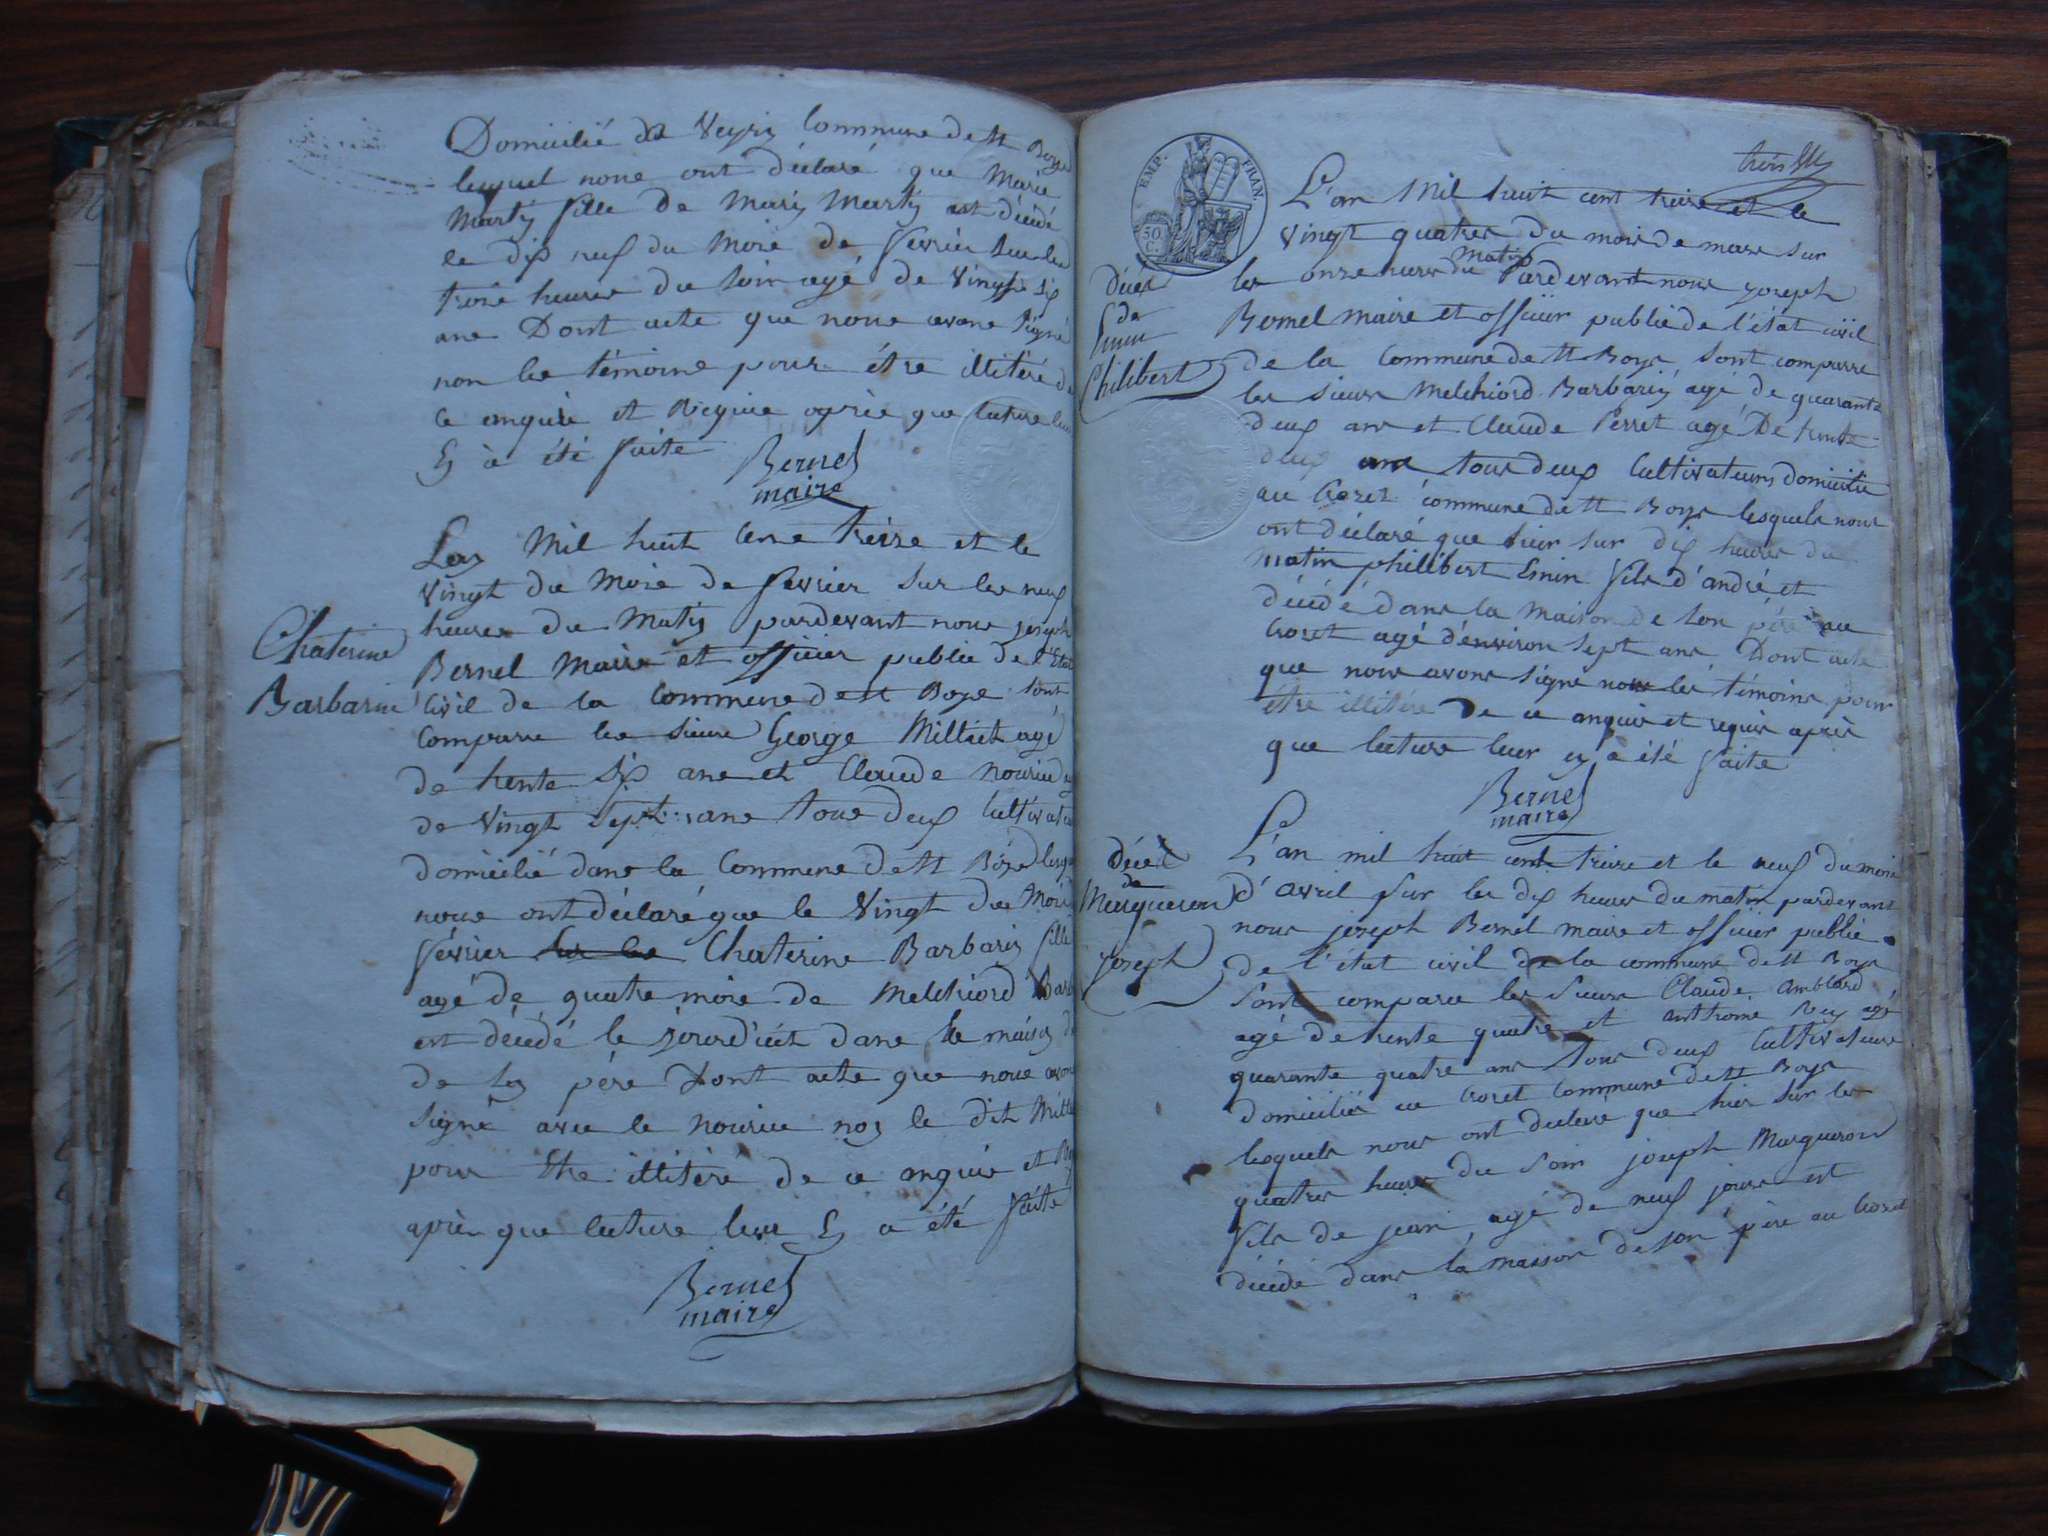 Domicilié da Veyrin Commune de st Boye
lequel noue ont déclaré que Marie
Martin fille de Marin Martin est décédé
le dix neuf du Moie de fevrier sur les
troie heuree du soir agé de Vingt six
ane Dont acte que noue avone signé
non lee témoine pour être illitéré de
ce enquie et Requie aprèe que lecture leur
En à été faite
Bernel
maire
Lan Mil huit Cene treize et le
Vingt du Moie de fevrier sur lee neuf
heuree du Matin pardevant noue joseph
Bernel Maire et officier publie de l'Etat
Civil de la Commune de st Boye sont
Comparu lee sieure George Milliet agé
de trente six ane et Claude nourice agé
de Vingt sept ane toue deux Cultivate
domicilié dans la Commune de st Boye lesque
noue ont déclaré que le Vingt du Moie
fevrier sur lee Chaterine Barbarin fille
agé de quatre moie de Melchiord Barb
est décédé le jourd'uit dane la maison de
de son père Dont acte que noue avon
signé avec le nourice non le dit Millie
pour Etre illitéré de ce enquie et Re
aprèe que lecture leur En a été faite
Bernel
maire
Chaterine
Barbarin
EMP. FRAN.
50 C.
trois
L'an Mil huit cent treize et le
vingt quatres du mois de mars sur
les onze heures du Matin Pardevant nous joseph
Bernel maire et officier publié de l'état civil
de la Commune de st Boys sont comparre
les sieurs Melchiord Barbarin agé de quarante
deux ans et Claude Perret agé De trente
deux ans tous deux Cultivateurs domicilié
au Crozet commune de st Boys lesquels nous
ont déclaré que hier sur dix heures du
matin philibert Emin fils d'andré et
décédé dans la maison de son péré au
Crozet agé d'environ sept ans Dont acte
que nous avons signé non les témoins pour
être illitéré De ce enquis et requis après
que lecture leur en a été faite
Bernel
maire
Décès
de
Emin
Philibert
L'an mil huit cent treize et le neuf du mois
d'avril sur les dix heures du matin pardevant
nous joseph Bernel maire et officier publié
de l'état civil de la commune de st Boys
sont comparu les sieurs Claude Amblard
agé de trente quatre et anthoine Rey agé
quarante quatre ans tous deux Cultivateurs
domiciliés au Crozet Commune de st Boys
lesquels nous ont declare que hier sur les
quatres heures du soir joseph Marqueron
fils de jean, agé de neuf jours est
décédé dans la maison de son père au Crozet
Décès
de
Marqueron
joseph